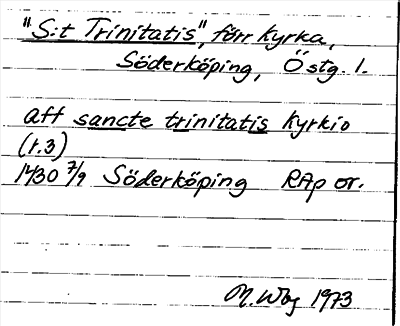 "S:t Trinitatis", förr kyrka,
Söderköping, Östg. l.
aff sancte trinitatis kyrkio
(r.3)
1430 7/9 Söderköping RAp or.
M. Wbg 1973